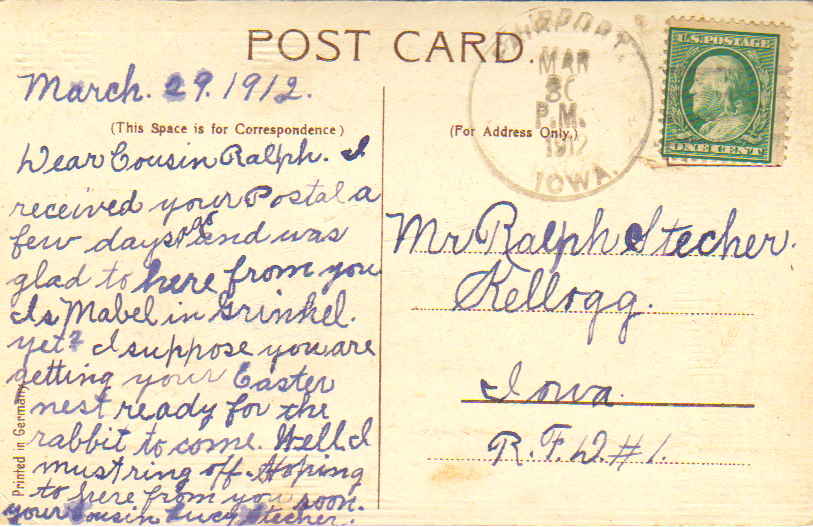 POST CARD.
March. 29. 1912.
(This Space is for Correspondence)
Dear Cousin Ralph. I
received your Postal a
few days ago and was
glad to here from you
Is Mabel in Grinnel.
yet? I suppose you are
getting your Easter
nest ready for the
rabbit to come. Well I
must ring off. Hoping
to here from you soon.
your Cousin Lucy Stecher.
Printed in Germany
(For Address Only.)
MAR
30
P.M.
1912
IOWA.
U.S. POSTAGE
ONE CENT
Mr Ralph Stecher.
Kellogg.
Iowa.
R.F.D.#1.